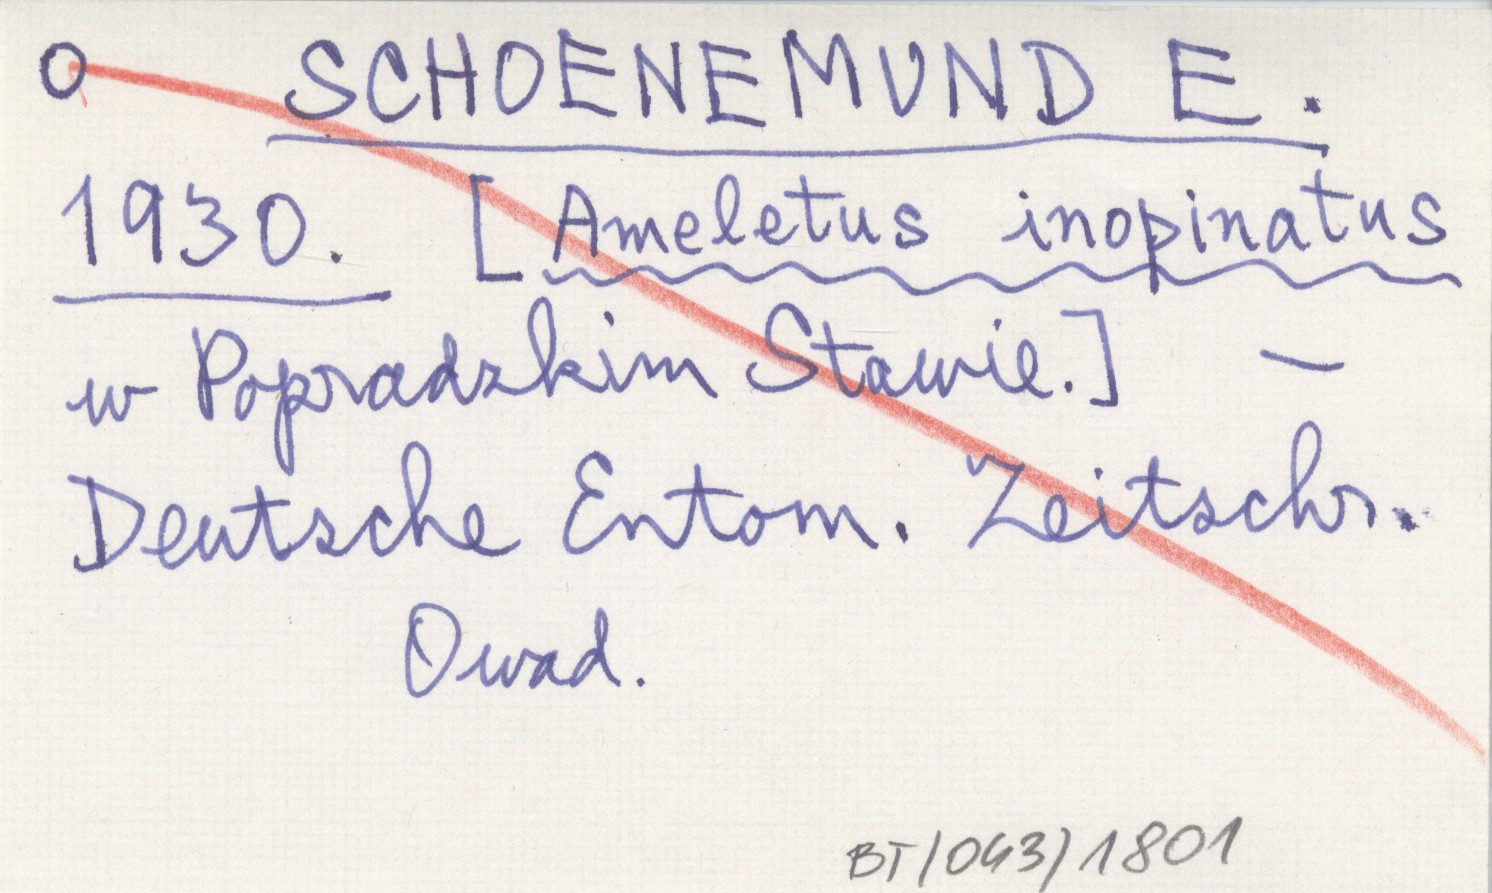 O SCHOENEMUND E.
1930. [Ameletus inopinatus
w Popradzkim Stawie.] —
Deutsche Entom. Zeitschr.
Owad.
BT/043/1801